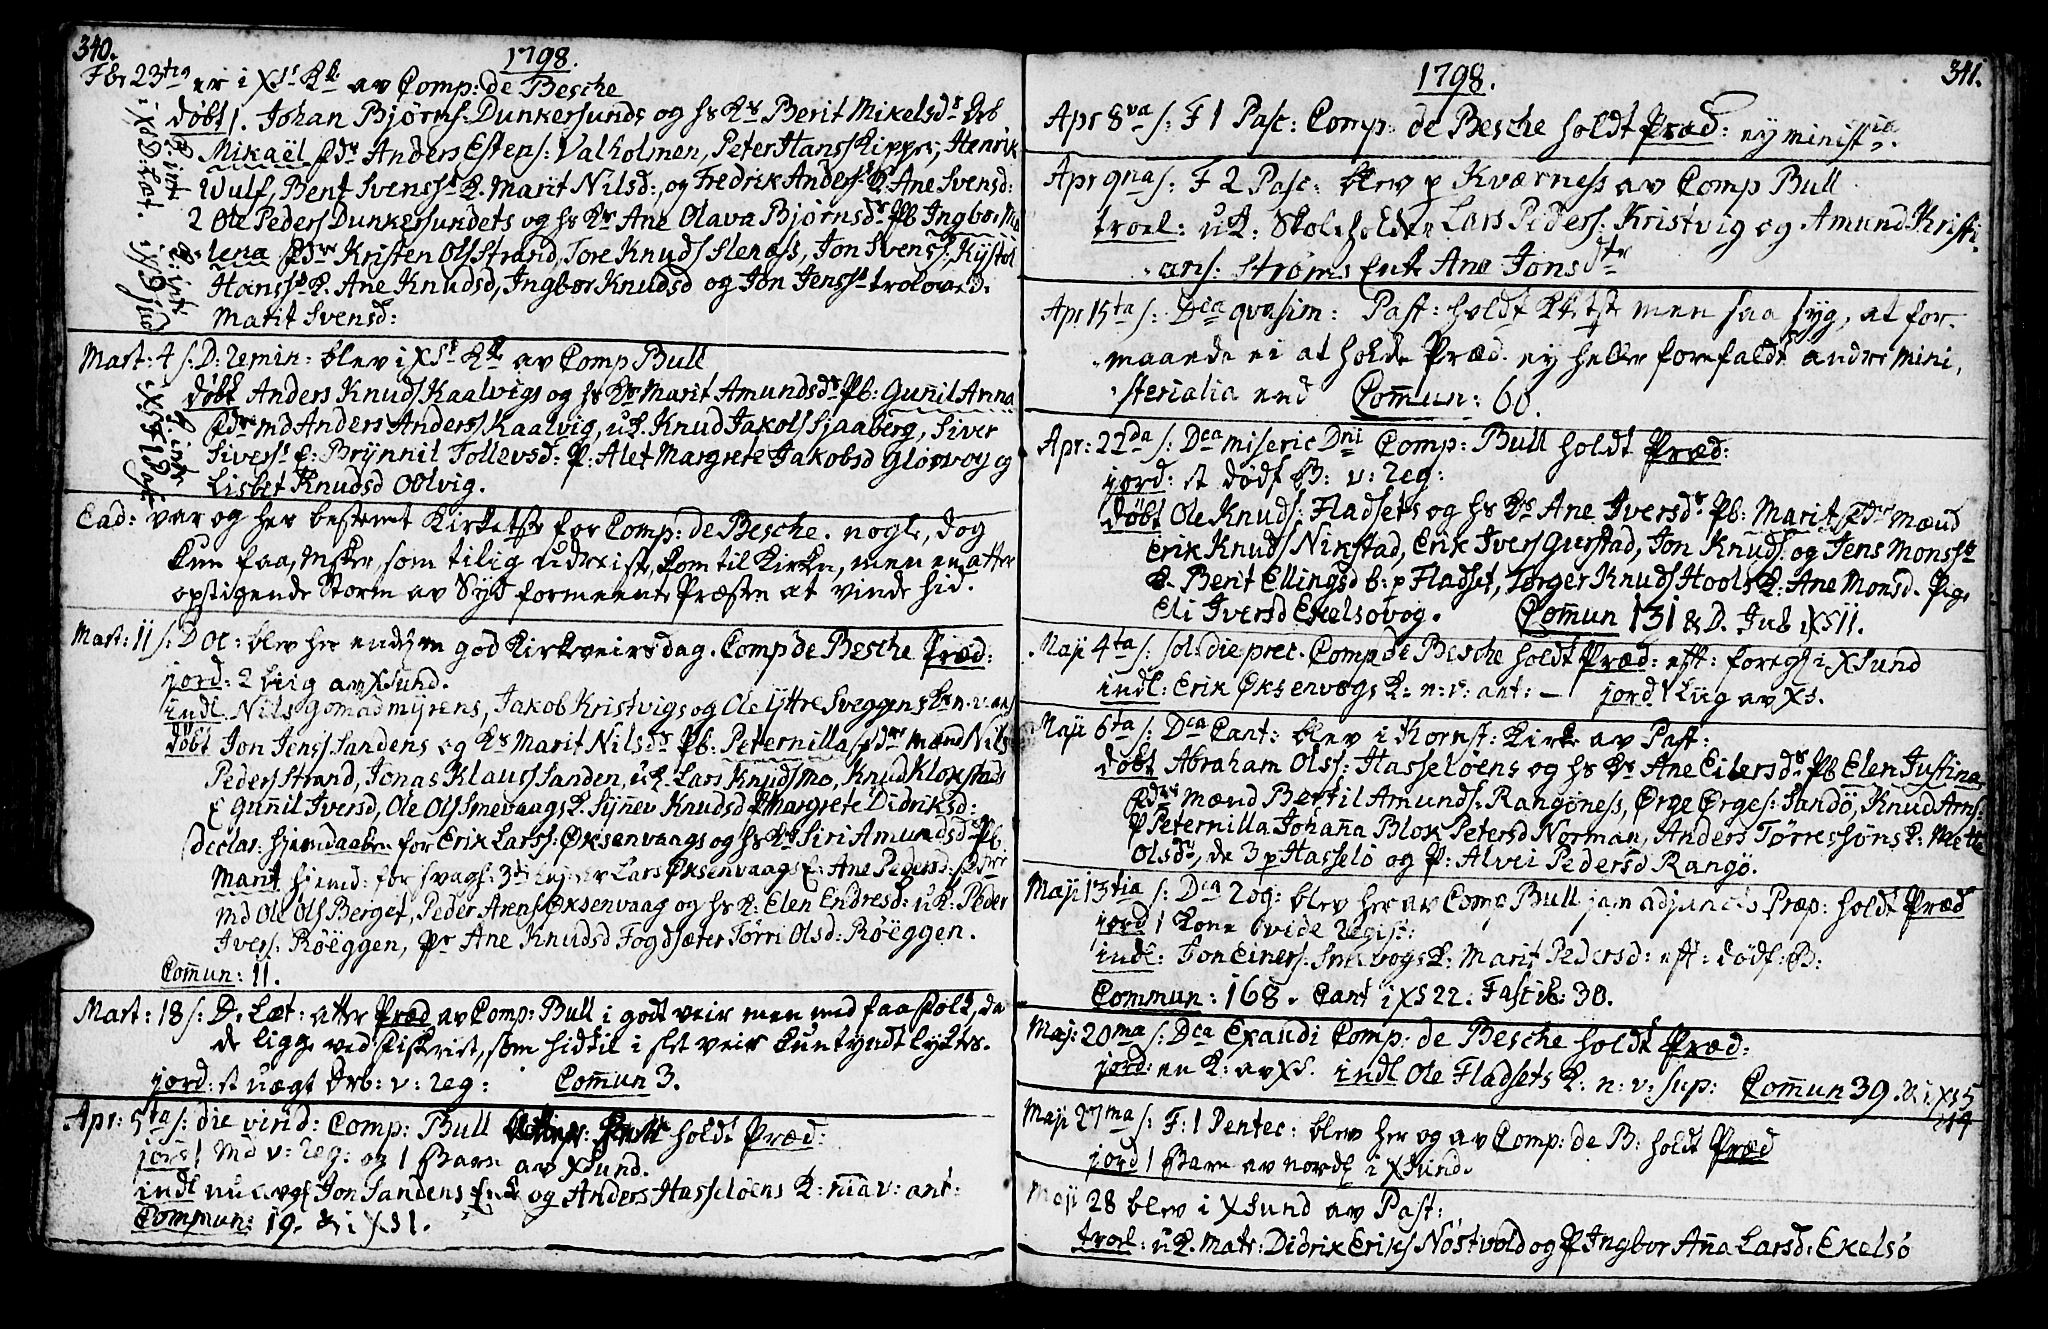 340.
1798.
Feb 23tia er i XSs Kk av Comp: de Besche
døbt 1. Johan Bjørns: Dunkersunds og hs Ks Berit Mikelsdr Drb
Mikaël fdr Anders Estens: Valholmen, Peter Hans Skipper, Henrik
Wulf, Bent Svenss K. Marit Nilsd:, og Fredrik Anders K. Ane Svensd:
2 Ole Peders Dunkersundets og hs Ks Ane Olava Bjørnsdr Pb Ingbor Mag
lena fdr Kristen Ols Strand, Tore Knuds Slenæs, Jon Svenss: Kystol
Hanss K. Ane Knudsd, Ingbor Knudsd og Jon Jenss trolovede
Marit Svensd:
Mart: 4 s: D: Remin: blev i XSs Kk av Comp Bull
døbt Anders Knuds Kaalvigs og hs Ks Marit Amundsdr Pb: Gunnil Anna
fdr md Anders Anders Kaalvig, uK. Knud Jakobs Sjaaberg, Siver
Sivers E: Brynnil Tollevsd: P: Alet Margrete Jakobsd Glosvog og
Lisbet Knudsd Odlvig.
Ead: var og her bestemt Kirketste for Comp: de Besche. nogle, dog
kun faa, Mskr, som tilig udreiste, kom til Kirke, men en atter
opstigende Storm av Syd formeente Præsten at vinde hid.
Mart: 11 s: D Oc: blev her endlig en god Kirkeveirsdag. Comp de Besche Præd:
jord: 2 Liig av XSund.
indl Nils Gomadmyrens, Jakob Kristvigs og Ole Yttre Sveggens Kn. v. ant
døbt Jon Jens Sandens og Ks Marit Nilsdr Pb: Peternilla fdr mænd Nils
Peders Strand, Jonas Klaus Sanden, uK. Lars Knuds Mo, Knud Klokstads
E Gunnil Iversd, Ole Ols Smevaags K. Synnev Knudsd P Margrete Didriksd:
declar: hjemdaaben for Erik Larss: Øksenvaags og hs Ks Siri Amundsd Pb.
Marit hjemd: for svagh: Lars Øksenvaags E: Ane Pedersd: fdr
md Ole Ols Berget, Peder Arens Øksenvaag og hs K: Elen Endresd: uK: Peder
Ivers: Røeggen, Pr Ane Knudsd Fogdsæter Torri Olsd: Røeggen.
Commun: 11.
Mart: 18 s: D. Læt: atter Præd av Comp: Bull i godt veir men med faa Folk, da
de ligge ved fiskeriet, som hidtil i slet veir kun tyndt lykkes.
jord: et uægt Drb: v: Reg: Commun 3.
Apr: 5ta s: die virid: Comp: Bull holdt Præd:
jord 1 Md v: Reg: og 1 Barn av XSund.
indl Jon Sandens og Anders Hasseløens K: v: ant:
Commun: 19. & i XS 1.
341.
1798.
Apr 8va s: F 1 Pasc: Comp: de Besche holdt Præd: ej ministria.
Apr 9na s: F 2 Pasc: blev p Kværness av Comp Bull
troel: uK: Skoleholder Lars Peders: Kristvig og Amund Kristi-
ans: Strøms Enke Ane Jonsdtr
Apr 15ta s: Dca qvasim: Past: holdt Kktste men saa syg, at for-
maaede ei at holde Præd. ej heller forefaldt andre mini-
sterialia end Commun: 60.
Apr: 22da s: Dca miseric Dni Comp: Bull holdt Præd:
jord: et dødf B: v: Reg:
døbt Ole Knuds: Fladsets og hs Ks Ane Iversdr Pb: Marit fdr mænd
Erik Knuds Nikstad, Erik Ivers Gurstad, Jon Knuds og Jens Monss
K. Berit Ellingsd b: p Fladset, Torger Knuds Hools K: Ane Monsd. Pige
Eli Iversd Ekelsovog. Commun 131 & D. Jub i XS 11.
Maji 4ta s: sol: die prec. Comp de Besche holdt Præd: eft: foregh i XSund
indl: Erik Øksenvogs K: n: v: ant: — jord 1 Liig av XS.
Maji 6ta s: Dca Cant: blev i Kornst: Kirke av Past:
døbt Abraham Ols: Hasseløens og hs Ks Ane Eilersdr Pb Elen Justina
fdr mænd Bertil Amunds: Rangøness, Ørge Ørges: Sandö, Knud Arns:
P Peternilla Johanna Blok Petersd Norman, Anders Tørreshøns K: Mette
Olsdr, de 3 p Hasselø og P: Alvei Pedersd Rangö.
Maji 13tia s: Dca Rog: blev her av Comp Bull jam adjuncts Præp: holdt Præd
jord 1 Kone vide Regist:
indl: Jon Einers: Snekvogs K: Marit Pedersd: eft: dødf: B:
Commun: 168. Cant i XS 22: Fastib: 30.
Maj: 20ma s: Dca Exaudi Comp: de Besche holdt Præd:
jord: en K: av XS. indl Ole Fladsets K: n: v: sup: Commun 39. & i XS 5
Maji 27ma s: F: 1 Pentec: blev her og av Comp: de B: holdt Præd
jord 1 Barn av nordl i XSund.
Maji 28 blev i XSund av Past:
troel: uK. Matr: Didrik Eriks Nöstvold og P Ingbor Anna Larsd: Ekelsö